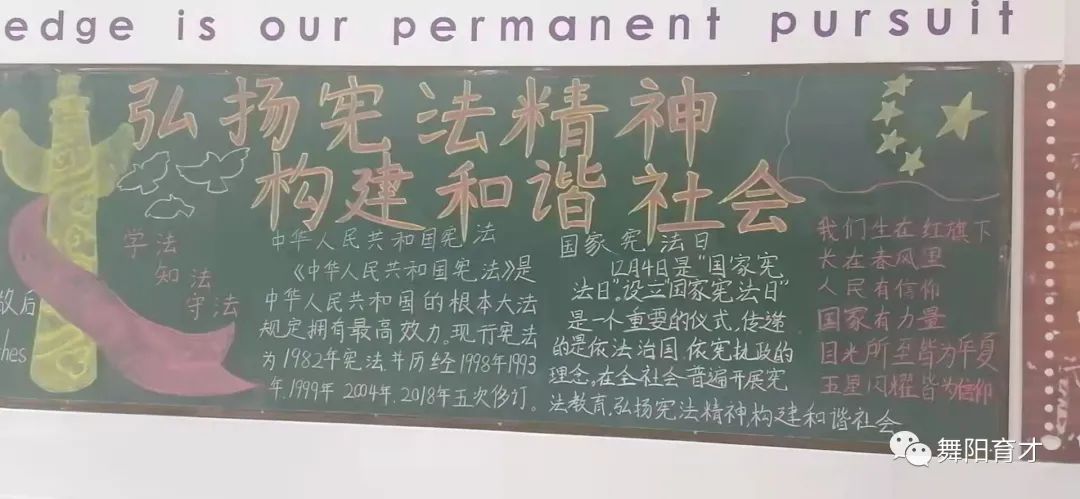 edge is our permanent pursuit
弘扬宪法精神
构建和谐社会
学法
知法
守法
敌后
hes
中华人民共和国宪法
《中华人民共和国宪法》是
中华人民共和国的根本大法
规定拥有最高效力。现行宪法
为1982年宪法并历经1998年1993
年,1999年 2004年,2018年五次修订。
国家宪法日
12月4日是“国家宪
法日”。设立“国家宪法日”
是一个重要的仪式,传递
的是依法治国.依宪执政的
理念。在全社会普遍开展宪
法教育,弘扬宪法精神,构建和谐社会
我们生在红旗下
长在春风里
人民有信仰
国家有力量
目光所至皆为华夏
五星闪耀皆为信仰
舞阳育才